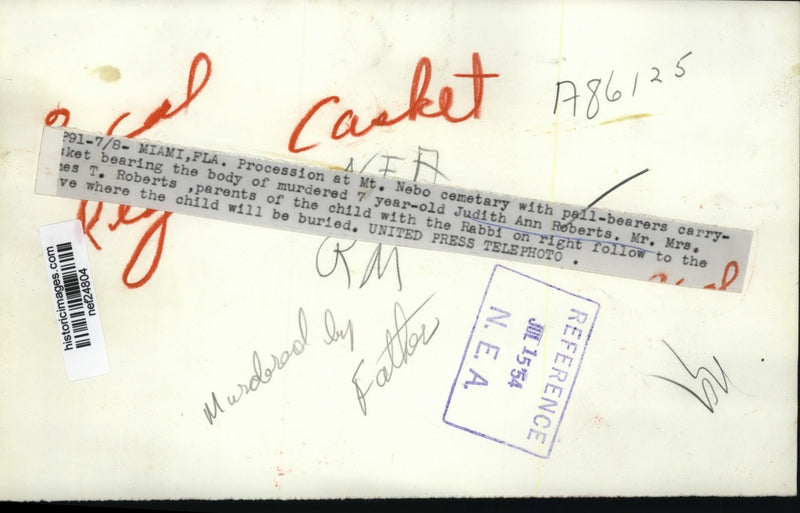 Casket
A86125
NEA
P91-7/8- MIAMI,FLA. Procession at Mt. Nebo cemetary with pall-bearers carry-
ket bearing the body of murdered 7 year-old Judith Ann Roberts. Mr. Mrs.
es T. Roberts ,parents of the child with the Rabbi on right follow to the
ve where the child will be buried. UNITED PRESS TELEPHOTO .
RM
historicimages.com
nef24804
Murdered by
Father
REFERENCE
JUL 15 '54
N.E.A.